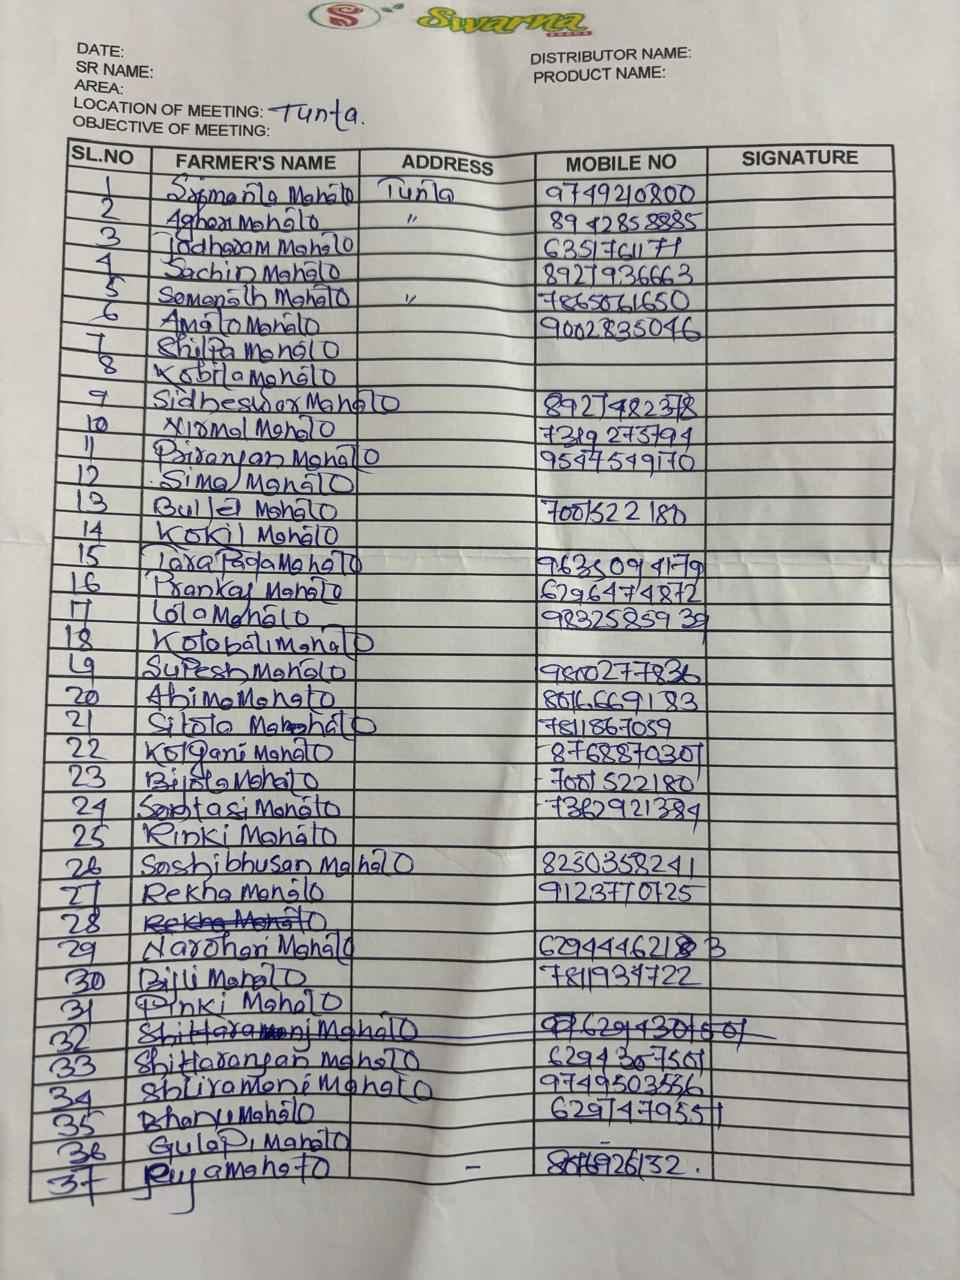 Swarna
DATE:
SR NAME:
AREA:
LOCATION OF MEETING: Tunta.
OBJECTIVE OF MEETING:
DISTRIBUTOR NAME:
PRODUCT NAME:
SL.NO FARMER'S NAME ADDRESS MOBILE NO SIGNATURE
1 Srimanta Mahato Tunta 9749210800
2 Aghor Mahato " 8942858885
3 Jadharam Mahato 6351761171
4 Sachin Mahato 8927936663
5 Somanath Mahato " 7865061650
6 Amalo Mahato 9002835046
7 Shilpa Mahato
8 Kobila Mahato
9 Sidheswar Mahato 8927482378
10 Nirmal Mahato 7319273794
11 Biranjan Mahato 9547549170
12 Simal Mahato
13 Bullet Mahato 7001522180
14 Kokil Mahato
15 Tarapada Mahato 9635094179
16 Prankas Mahato 6296474872
17 Lola Mahato 9832585939
18 Kolobali Mahato
19 Supesh Mahato 9800277836
20 Ahima Mahato 8016669183
21 Sitola Mahato 7811867059
22 Kolgani Mahato 8768870301
23 Bijola Mahato 7001522180
24 Mahato 7362921384
25 Rinki Mahato
26 Soshibhusan Mahato 8250358241
27 Rekha Mahato 9123770725
28 Rekha Mahato
29 Narohari Mahato 6294446213
30 Billi Mahato 781934722
31 Pinki Mahato
32 Mahato
33 Shittaranjan Mahato 6294307501
34 Shliramoni Mahato 9749503536
35 Bhanu Mahato 6297479551
36 Gulapi Mahato -
37 Riya Mahato - 8016926132.